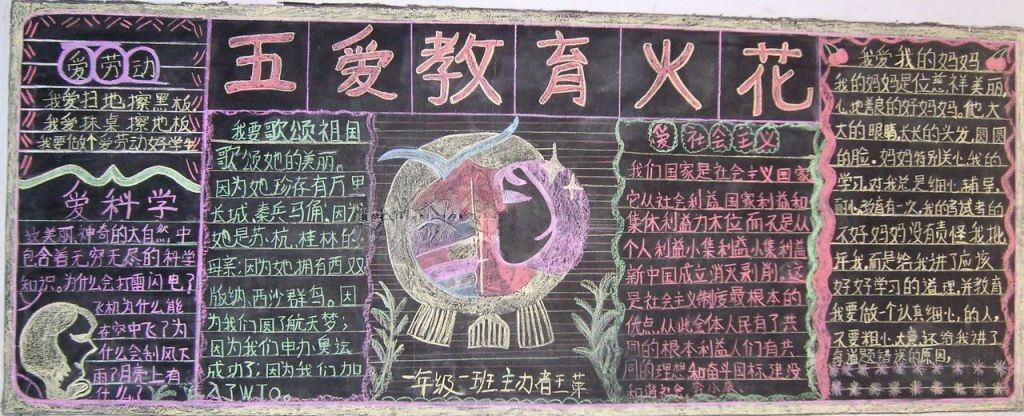 五爱教育火花
爱劳动
我爱扫地擦黑板
我爱抹桌擦地板
我要做个爱劳动好学生
爱科学
故美丽神奇的大自然中
包含着无穷无尽的科学
知识。为什么会打雷闪电
飞机为什么能
在空中飞了为
什么会刮风下
雨?月亮上有
什么?
我要歌颂祖国
歌颂她的美丽。
因为她珍存有万里
长城,秦兵马俑,因为
她是苏、杭、桂林的
母亲;因为她拥有西双
版纳,西沙群鸟。因
为我们圆了航天梦;
因为我们申办奥运
成功了;因为我们加
入了WTO。
一年级二班主办者王萍
爱社会主义
我们国家是社会主义国家
它从社会利益国家利益和
集体利益为本位而不是从
个人利益小集利益小集利益
新中国成立消灭剥削。这
是社会主义制度最根本的
优点,从此全体人民有了共
同的根本利益人们有共
同的理想和奋斗目标建设
和谐社会。
我爱我的妈妈
我的妈妈是位慈祥美丽
心地善良的好妈妈。他大
大的眼睛,长长的头发,圆圆
的脸。妈妈特别关心我的
学习,对我总是细心辅导,
耐心教育有一次,我的考试考的
不好妈妈没有责怪我批
评我,而是给我讲了应该
好好学习的道理,并教育
我要做个认真细心的人,
不要粗心大意还给我讲了
有道题错误的原因。